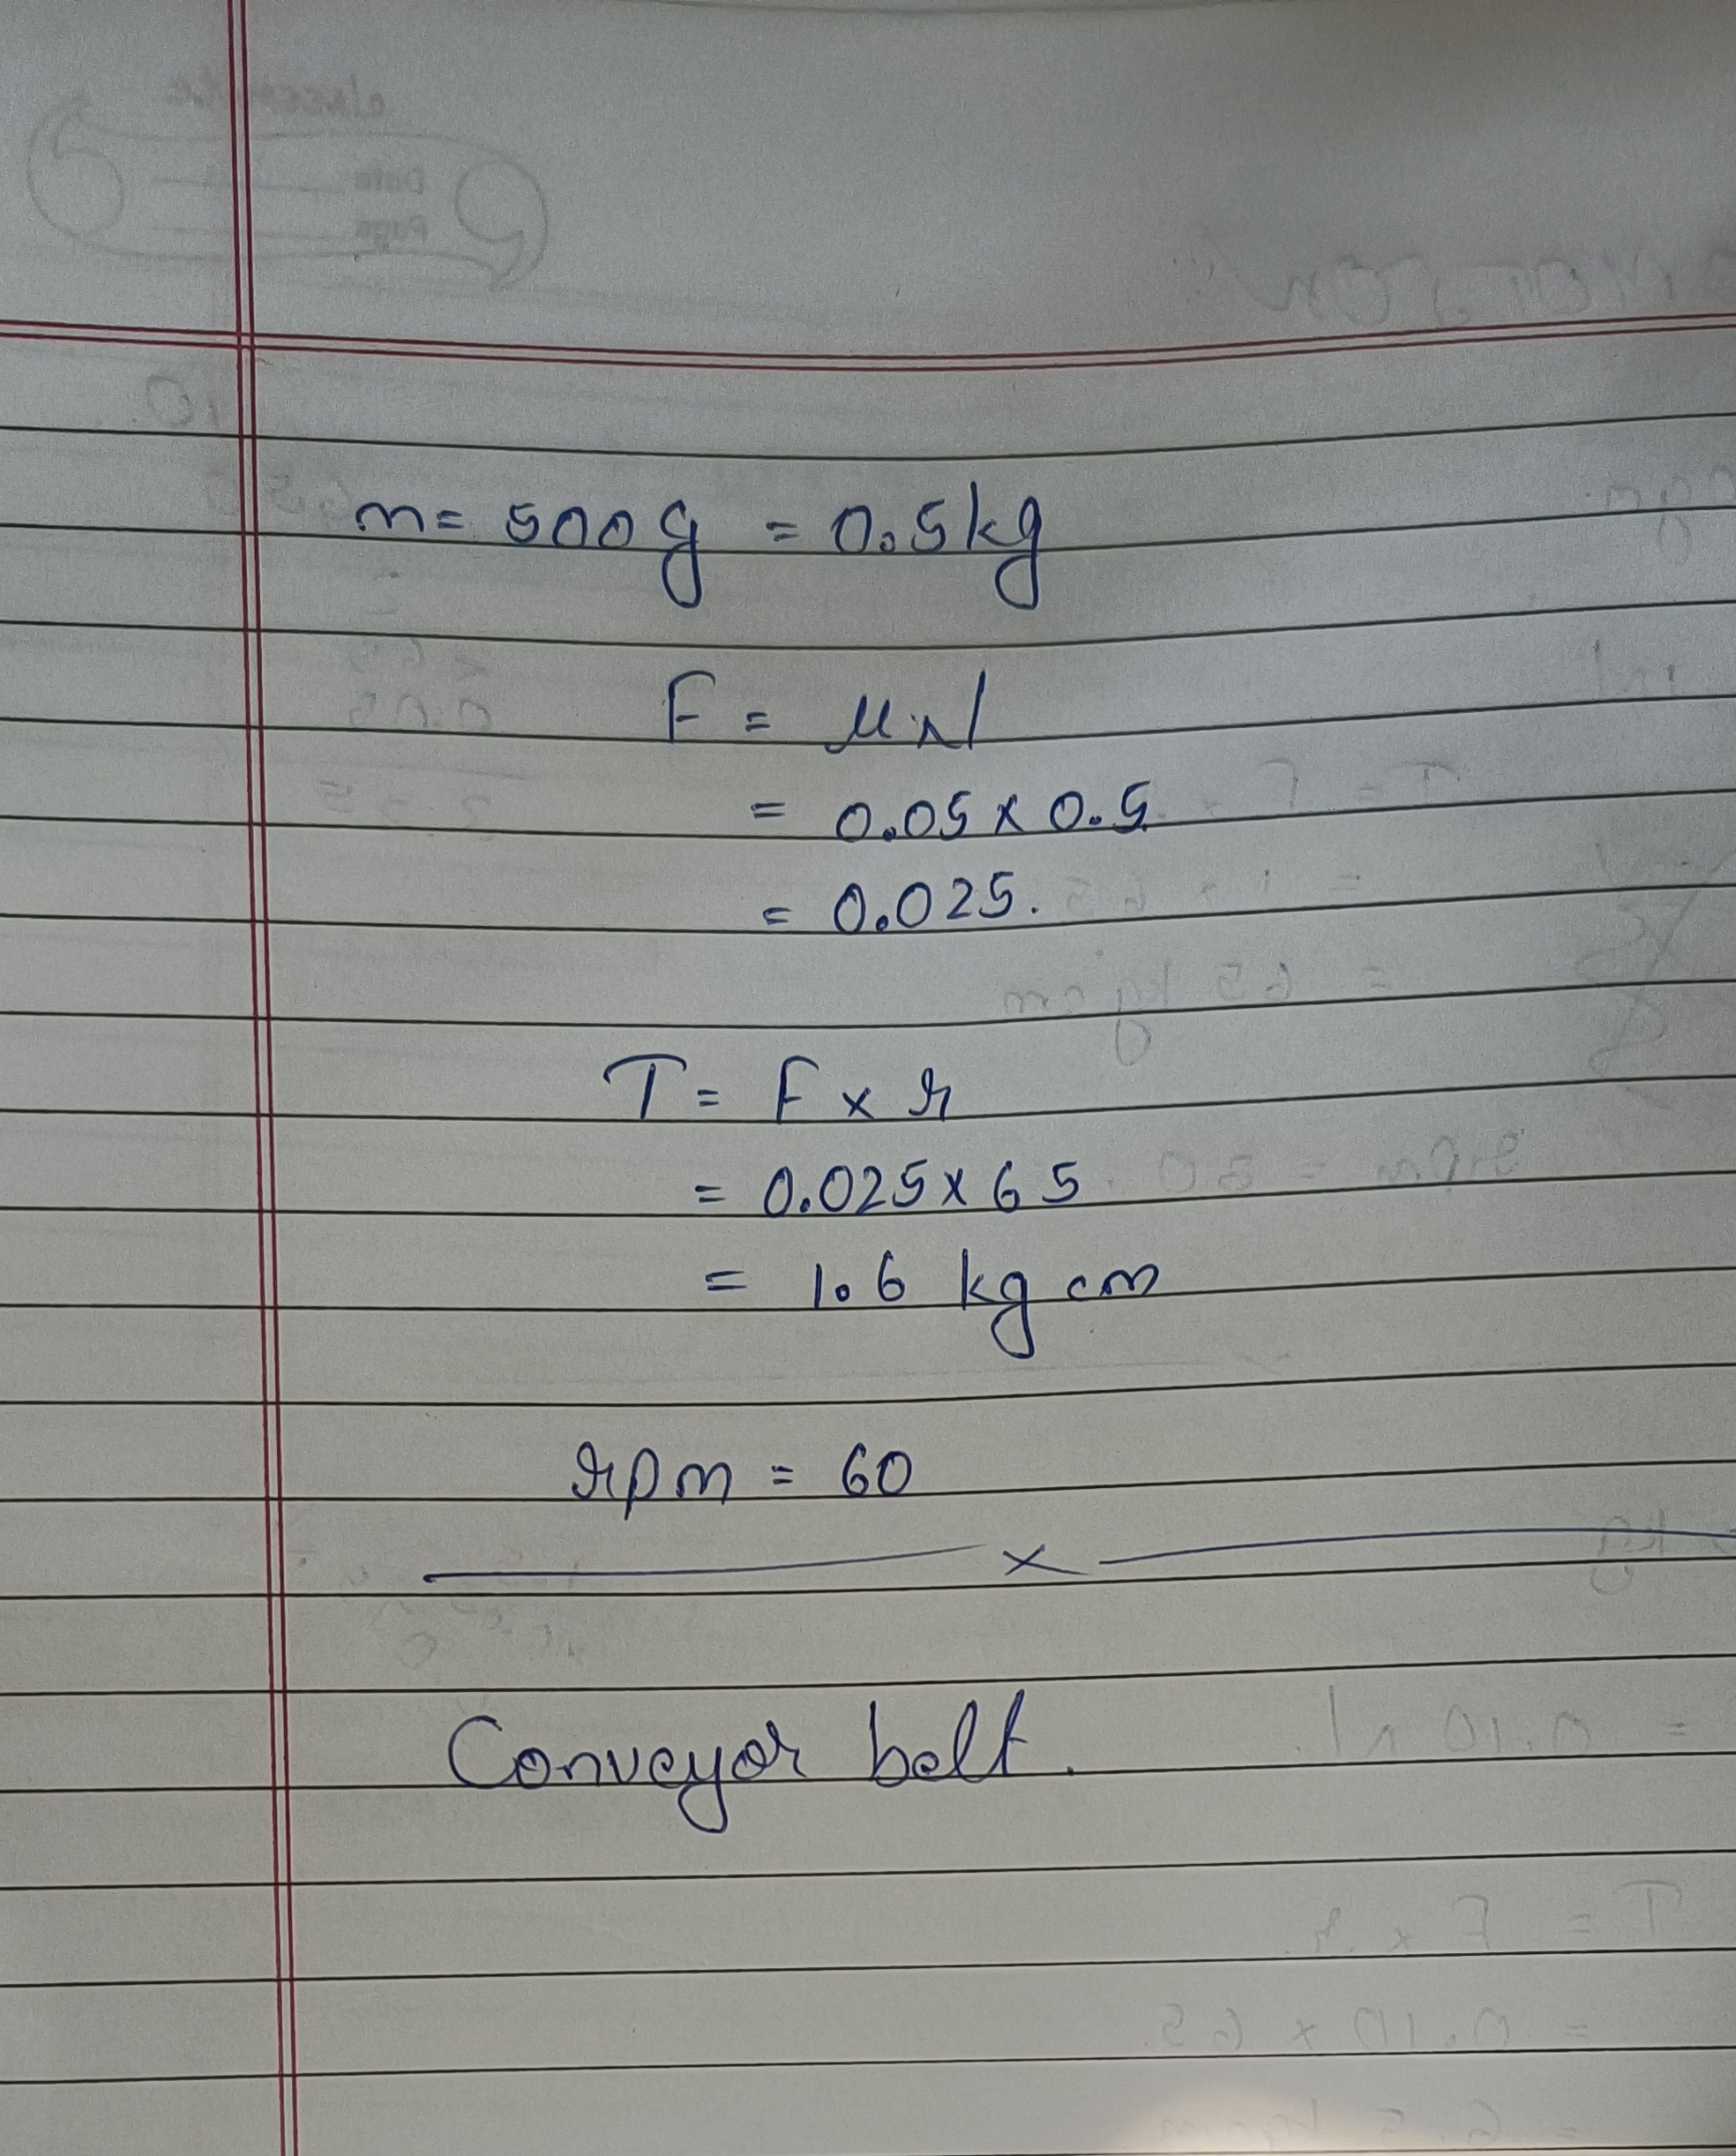 m = 500 g = 0.5 kg
F = μN
= 0.05 x 0.5
= 0.025.
T = F x r
= 0.025 x 65
= 1.6 kg cm
rpm = 60
x
Conveyor belt.